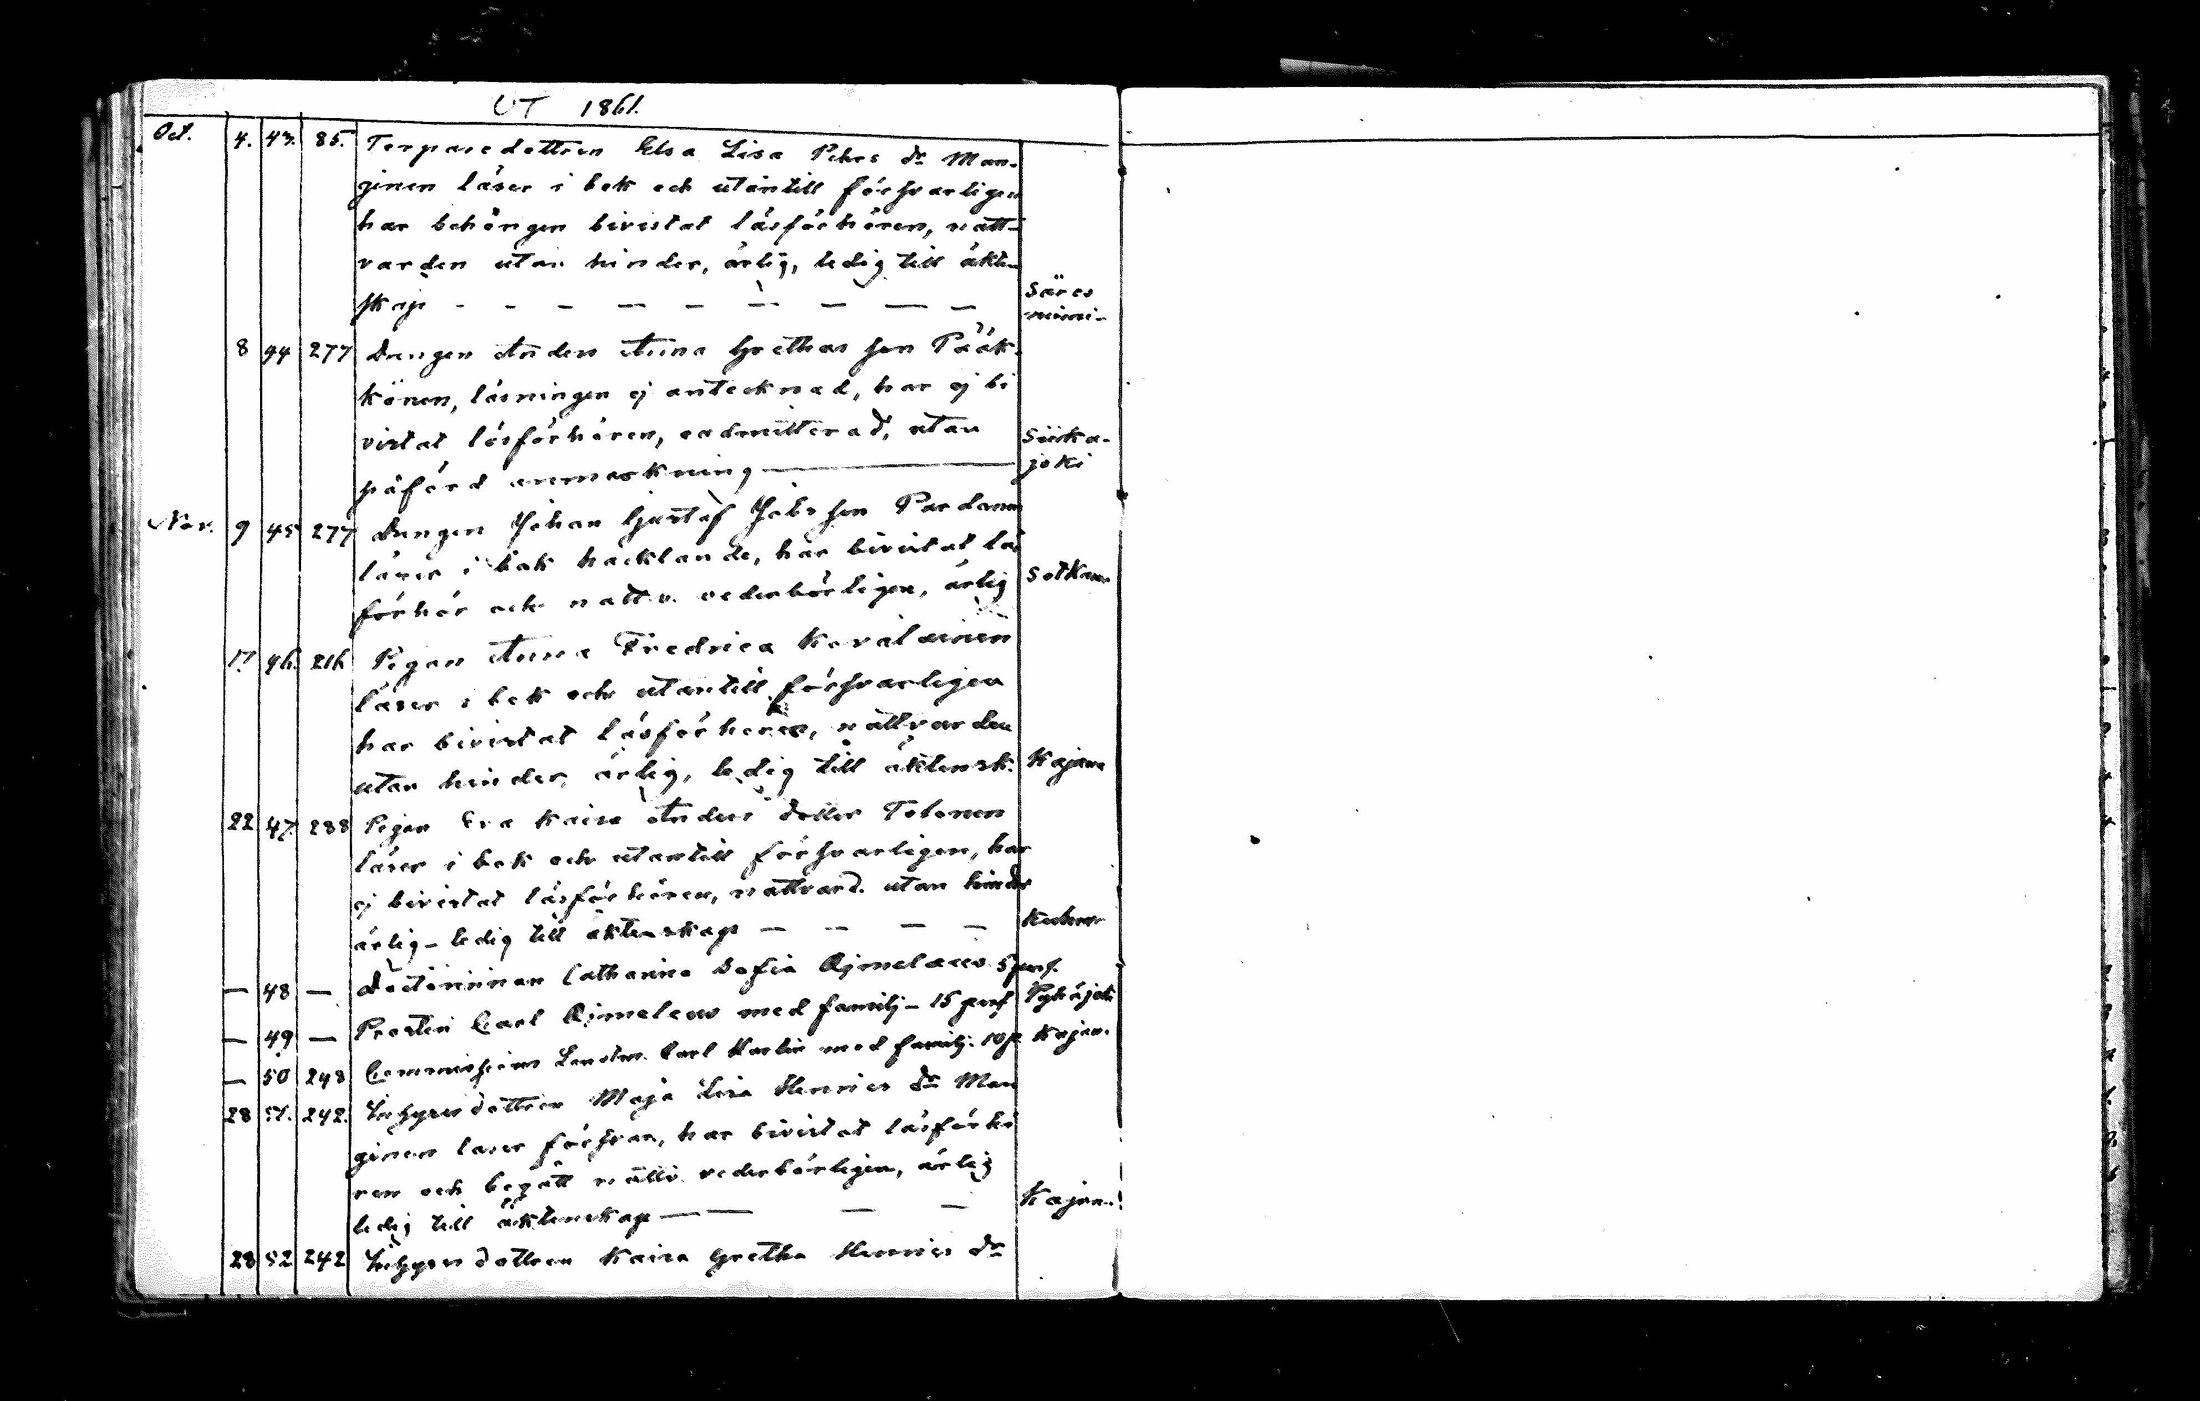 UT 1861.
Oct. 4. 43. 85. Torparedottren Elsa Lisa Pehrs dr Man-
ginen läser i bok och utantill försvarligen
har behörigen bivistat läsförhören, natt-
varden utan hinder, ärlig, ledig till äkten
skap - - - - - - - - - Säres
niemi-
8 44 277 Drengen Anders Anna Grethas son Pääk-
könen, läsningen ej antecknad, har ej bi
vistat läsförhören, oadmitterad, utan Siika-
påförd anmärkning — joki
Nov. 9 45 277 Drengen Johan Gustaf Jakobsson Pardanen
läser i bok hacklande, har bivistat läs
förhör och nattv. vederbörligen, ärlig Sotkamo
17 46. 216 Pigan Anna Fredrica Kovalainen
läser i bok och utantill försvarligen
har bivistat läsförhören, nattvarden
utan hinder, ärlig, ledig till äktensk. Kajana
22 47. 288 Pigan Eva Kaisa Anders dotter Tolonen
läser i bok och utantill försvarligen, har
ej bivistat läsförhören, nattvard. utan hinder
ärlig - ledig till äktenskap - - - - Kuhmo
— 48 — Doctorinnan Catharina Sofia Ajmelaeus 5 pers. Pyhäjoki
— 49 — Prosten Carl Ajmelaeus med familj - 15 pers Kajan.
— 50 248 Commissions Landtm. Carl med familj. 10 p.
28 51. 242. Inhyses dottren Maja Lisa Henrics dr Man
ginen läser försvar, har bivistat läsförhö
ren och begått nattv. vederbörligen, ärlig
ledig till äktenskap — — — — Kajana
28 52 242 Inhyses dottren Kaisa Gretha Henrics dr